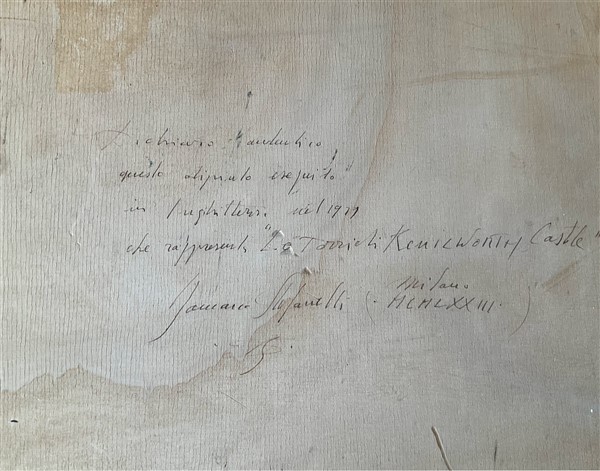 Dichiaro autentico
questo dipinto eseguito
in Inghilterra nel
che rappresenta "Le Torri di KENILWORTH Castle"
Stefanelli (- Milano
MCMLXXIII. )